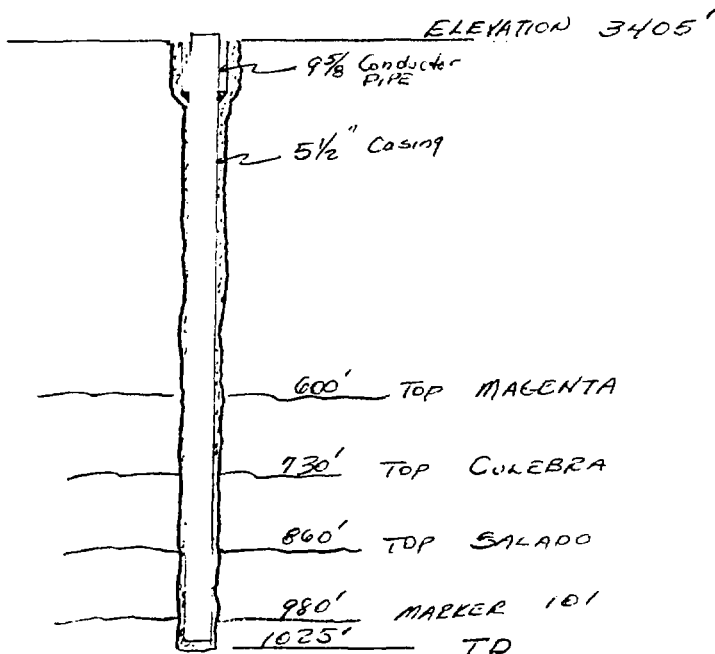 ELEVATION 3405'
9 5/8 Conductor
PIPE
5 1/2" Casing
600' TOP MAGENTA
730' TOP CULEBRA
860' TOP SALADO
980' MARKER 101
1025' TD